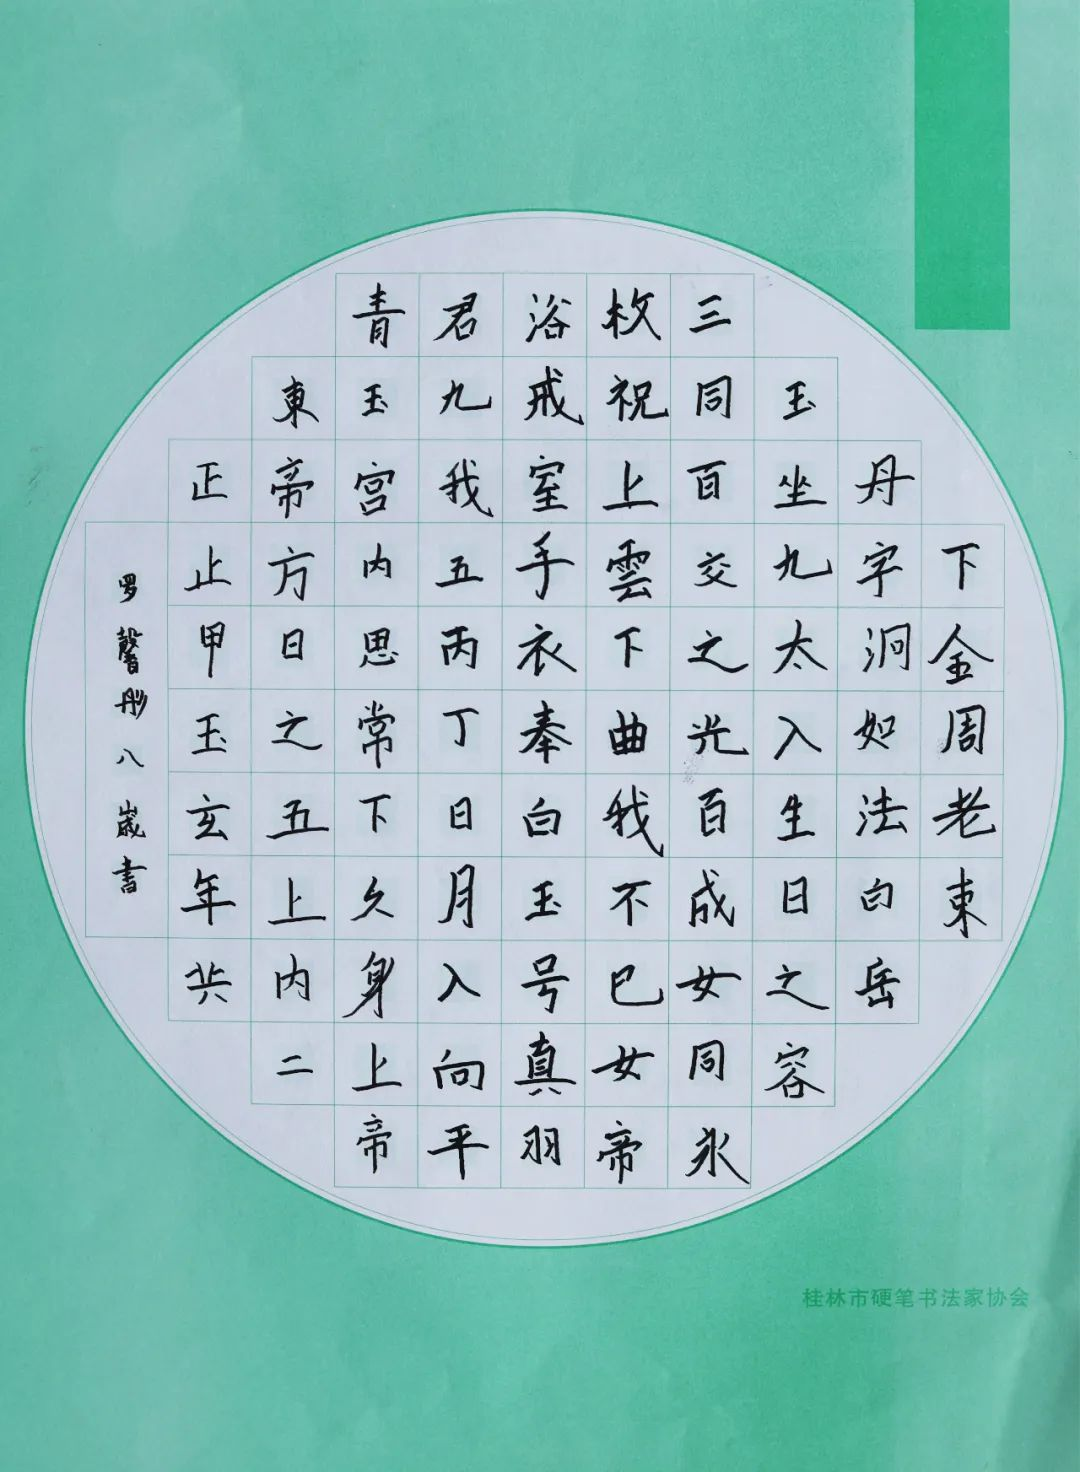 下金周老東
丹字洞如法白岳
玉坐九太入生日之容
三同百交之光百成女同永
枚祝上雲下曲我不已女帝
浴戒室手衣奉白玉号真羽
君九我五丙丁日月入向平
青玉宫内思常下久身上帝
東帝方日之五上内二
正止甲玉玄年共
罗馨彤八歲書
桂林市硬笔书法家协会